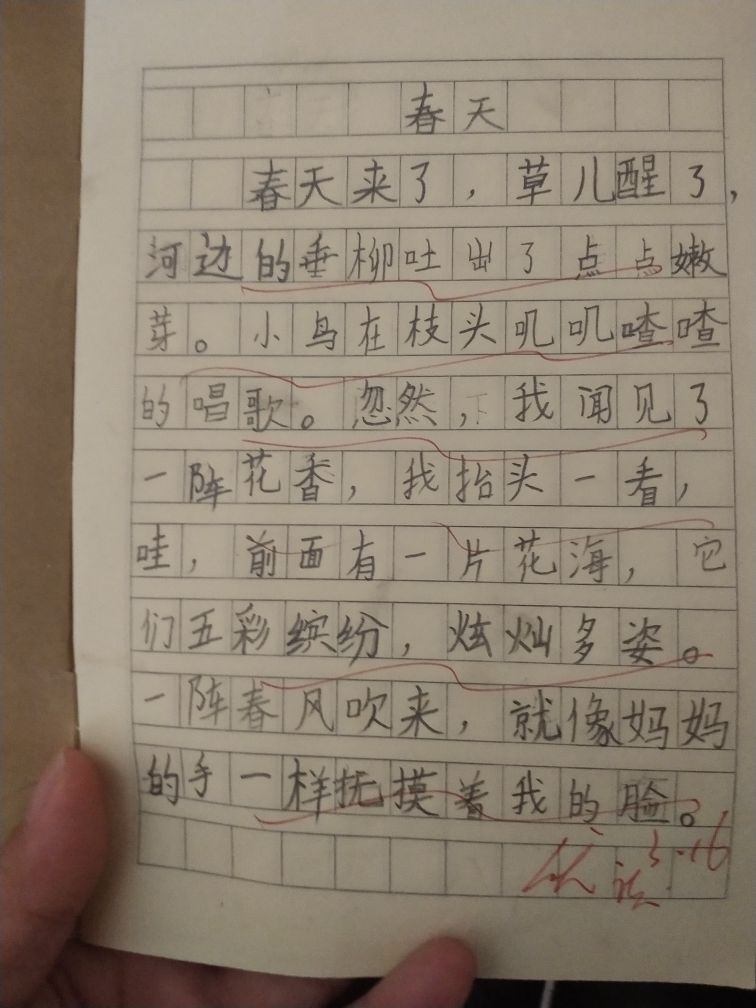 春天
春天来了，草儿醒了，
河边的垂柳吐出了点点嫩
芽。小鸟在枝头叽叽喳喳
的唱歌。忽然，我闻见了
一阵花香，我抬头一看，
哇，前面有一片花海，它
们五彩缤纷，炫灿多姿。
一阵春风吹来，就像妈妈
的手一样抚摸着我的脸。
3.16